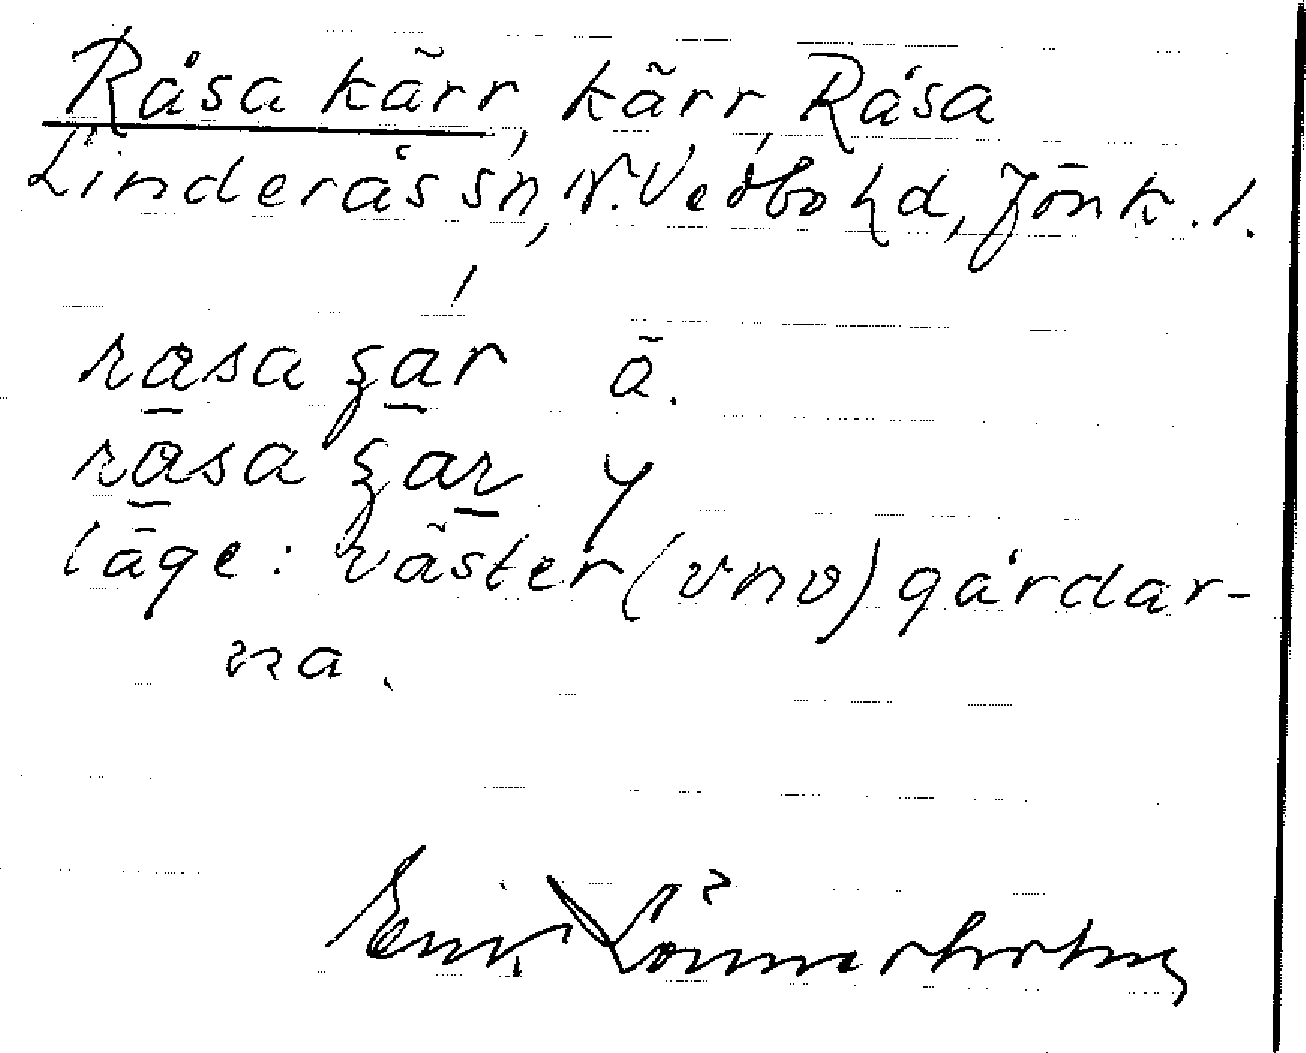 Råsa kärr, kärr, Råsa
Linderås sn, N. Vedbo hd, Jönk. l.
rasa ʒar ä.
rasa ʒar y
läge: väster (vnv) gårdar-
na.
Erik Lönnerholm